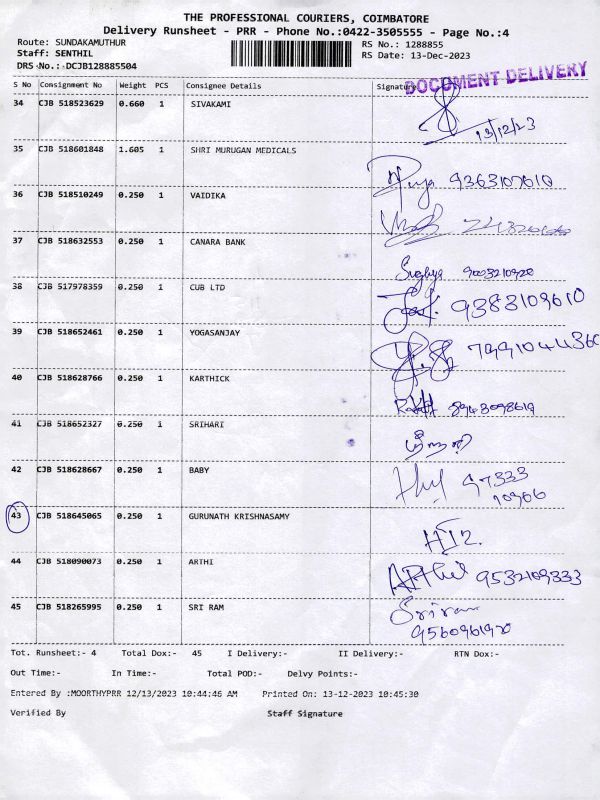 THE PROFESSIONAL COURIERS, COIMBATORE
Delivery Runsheet - PRR - Phone No.:0422-3505555 - Page No.:4
Route: SUNDAKAMUTHUR RS No.: 1288855
Staff: SENTHIL RS Date: 13-Dec-2023
DRS No.: DCJB128885504
DOCUMENT DELIVERY
S No Consignment No Weight PCS Consignee Details Signature
34 CJB 518523629 0.660 1 SIVAKAMI
13/12/23
35 CJB 518601848 1.605 1 SHRI MURUGAN MEDICALS
Priya 9363107610
36 CJB 518510249 0.250 1 VAIDIKA
37 CJB 518632553 0.250 1 CANARA BANK
9003210920
38 CJB 517978359 0.250 1 CUB LTD
9383109610
39 CJB 518652461 0.250 1 YOGASANJAY
7991044360
40 CJB 518628766 0.250 1 KARTHICK
8943098610
41 CJB 518652327 0.250 1 SRIHARI
ஸ்ரீஹரி
42 CJB 518628667 0.250 1 BABY
97333
10906
43 CJB 518645065 0.250 1 GURUNATH KRISHNASAMY
44 CJB 518090073 0.250 1 ARTHI
ARThi 9532109333
45 CJB 518265995 0.250 1 SRI RAM
Sriram
9560961920
Tot. Runsheet:- 4 Total Dox:- 45 I Delivery:- II Delivery:- RTN Dox:-
Out Time:- In Time:- Total POD:- Delvy Points:-
Entered By :MOORTHYPRR 12/13/2023 10:44:46 AM Printed On: 13-12-2023 10:45:30
Verified By Staff Signature